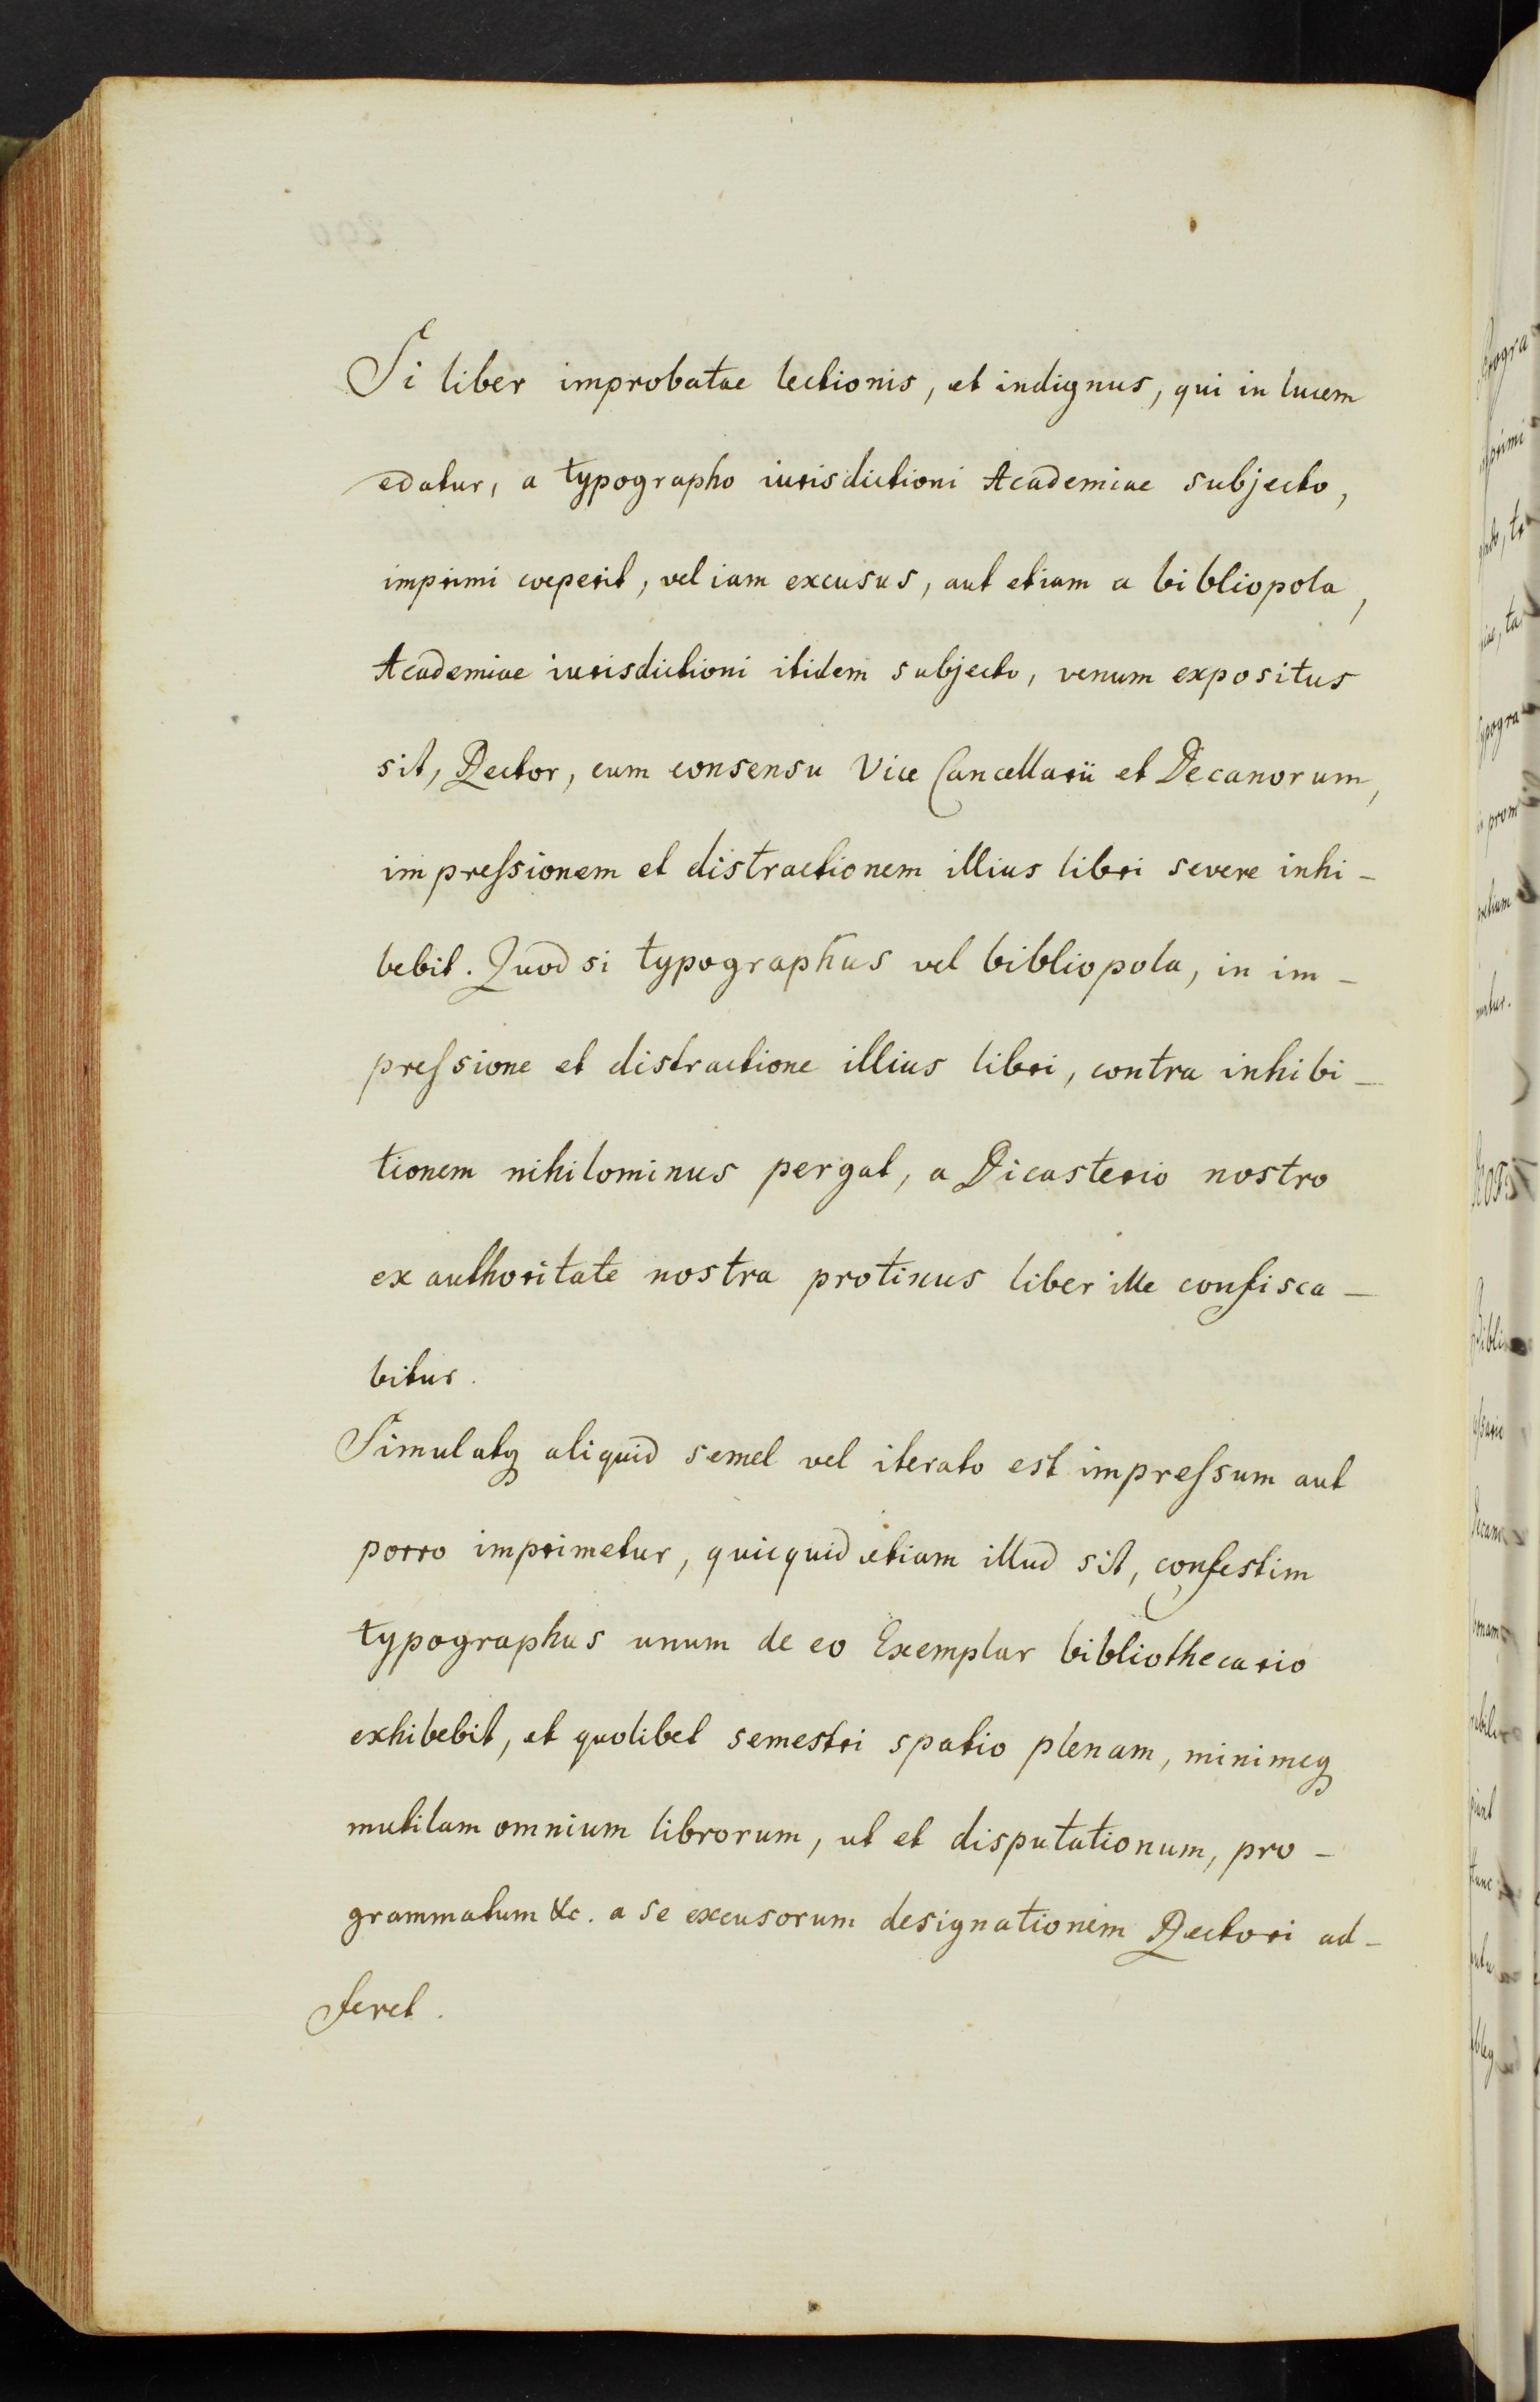 Si liber improbatae lectionis, et indignus, qui in lucem
edatur, a typographo iurisdictioni Academiae subjecto,
imprimi coeperit, vel iam excusus, aut etiam a bibliopola,
Academiae iurisdictioni itidem subjecto, venum expositus
sit, Rector, cum consensu Vice Cancellarii et Decanorum,
impreſsionem et distractionem illius libri severe inhi-
bebit. Quod si typographus vel bibliopola, in im-
preſsione et distractione illius libri, contra inhibi-
tionem nihilominus pergat, a Dicasterio nostro
ex authoritate nostra protinus liber ille confisca-
bitur.
Simulatq aliquid semel vel iterato est impreſsum aut
porro imprimetur, quicquid etiam illud sit, confestim
typographus unum de eo Exemplar bibliothecario
exhibebit, et quolibet semestri spatio plenam, minimeq
mutilam omnium librorum, ut et disputationum, pro-
grammatum &c. a se excusorum designationem Rectori ad-
feret.